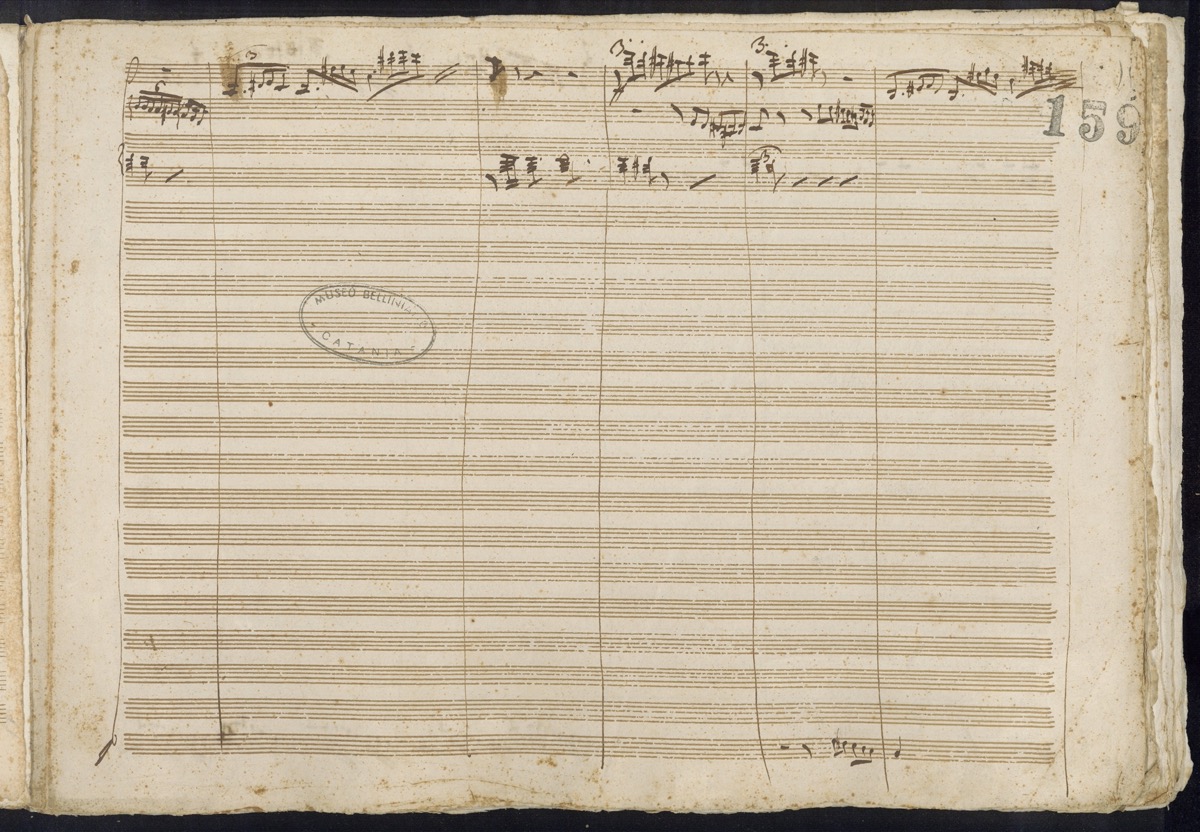 3
159
3.
3.
6
3
MUSEO BELLINIANO
CATANIA